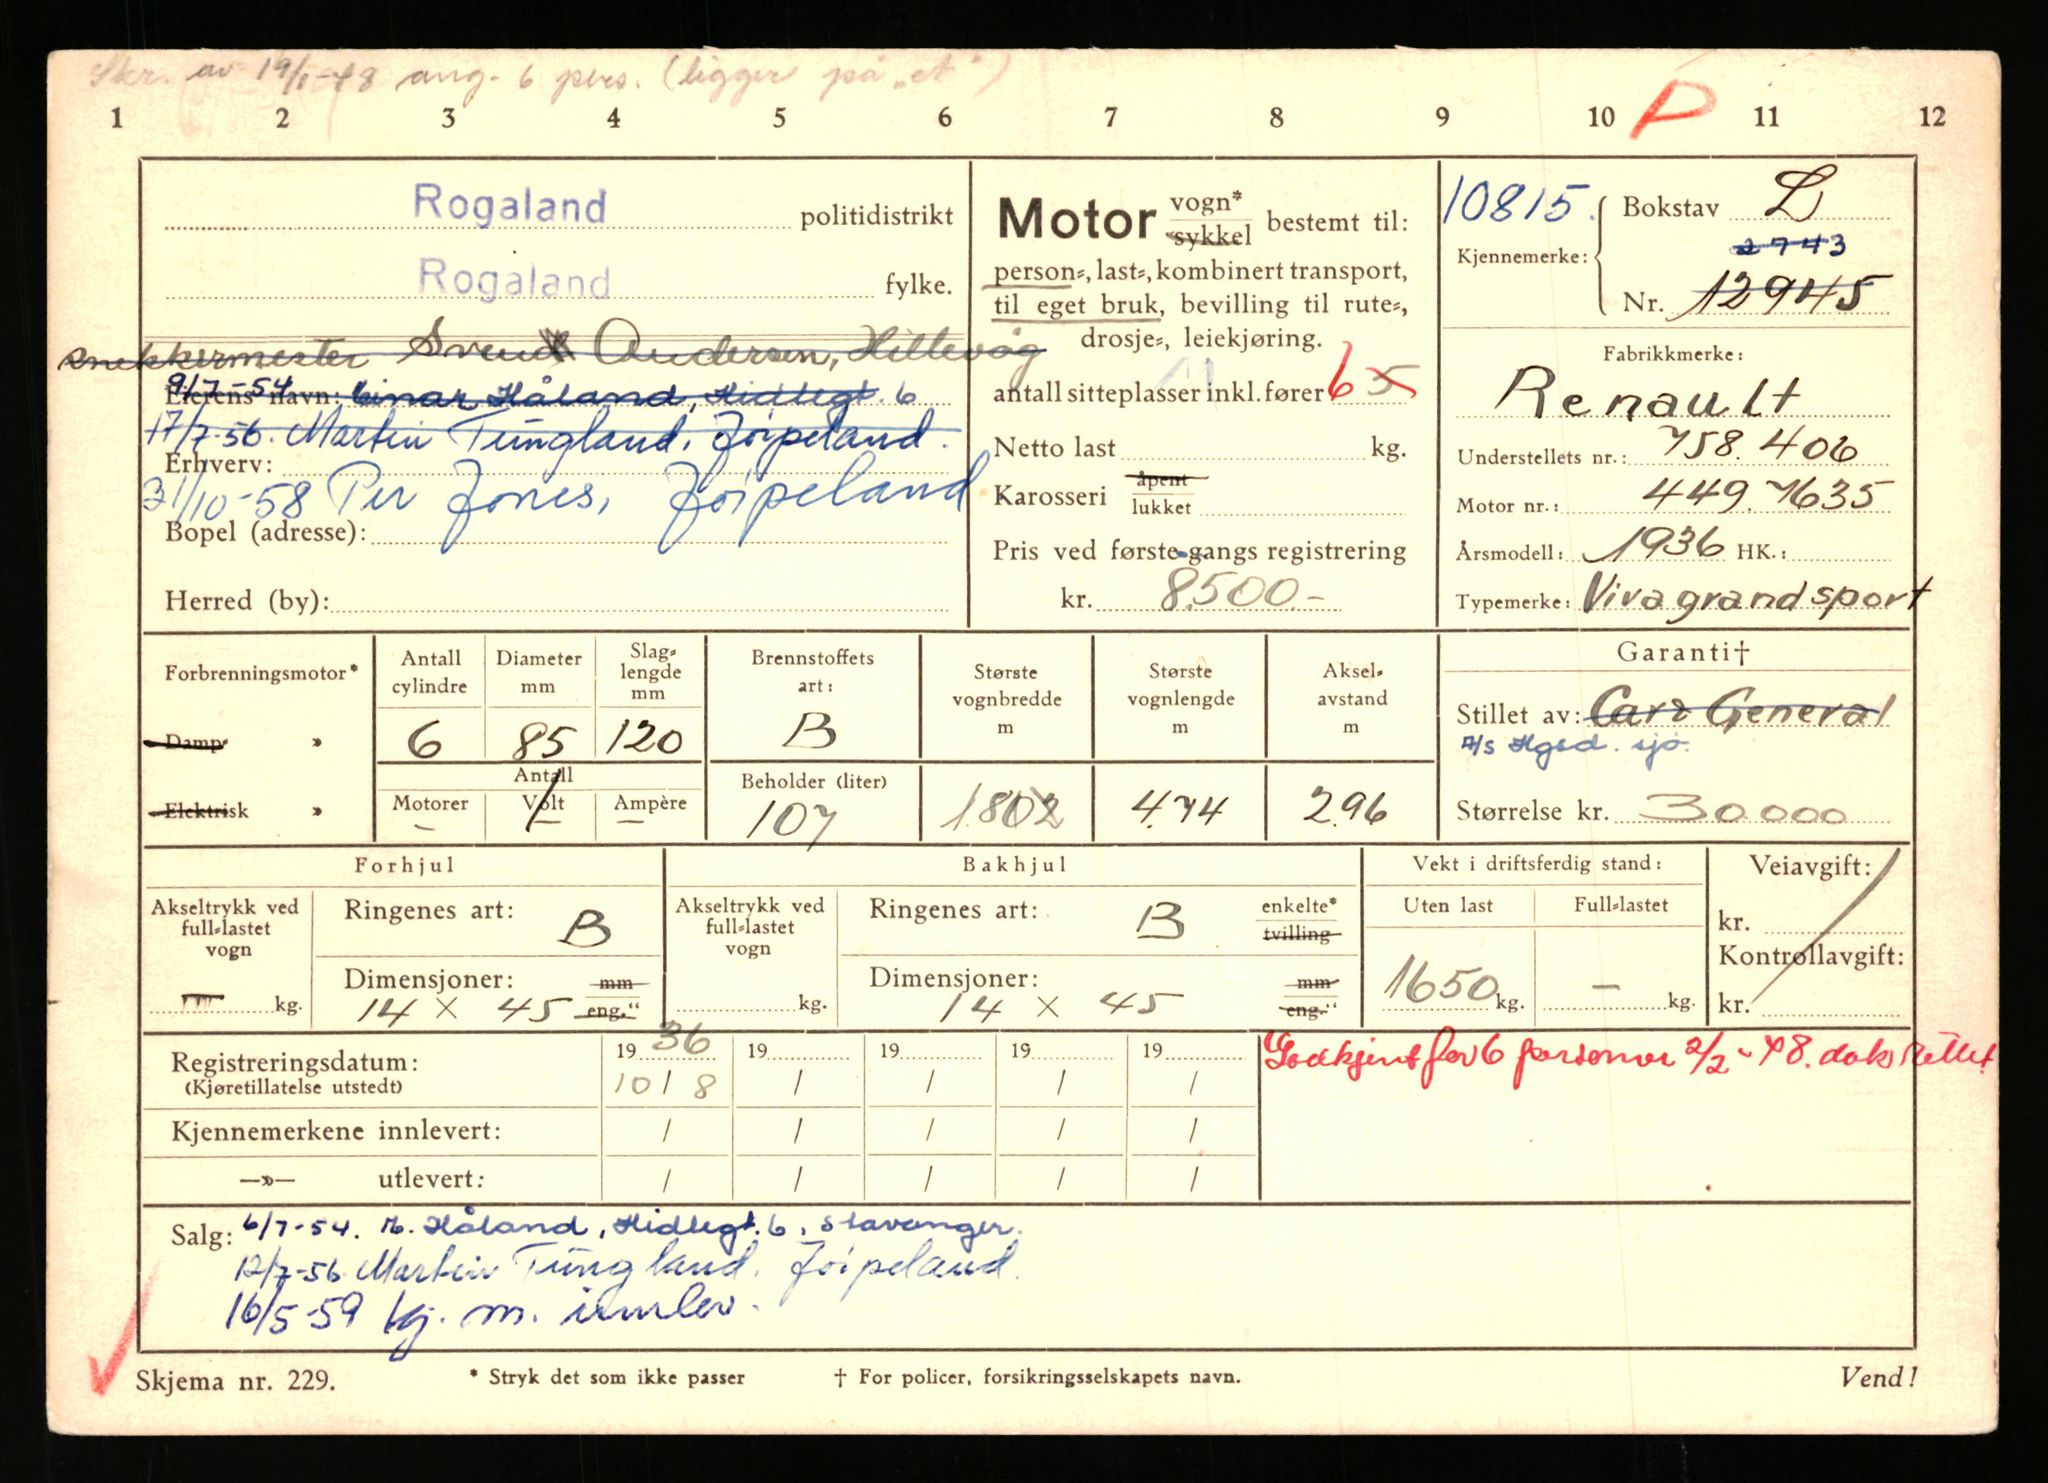 Skr. av 19/1-48 ang. 6 pers. (ligger på "et")
1 2 3 4 5 6 7 8 9 10 P 11 12
Rogaland politidistrikt
Rogaland fylke.
snekkermester Svend Andersen, Hillevåg
9/7-54
Eierens navn: Einar Håland, Hidlegt. 6
17/7-56. Martin Tungland, Jørpeland.
Erhverv:
31/10-58 Per Jones, Jørpeland
Bopel (adresse):
Herred (by):
Motor vogn* sykkel bestemt til:
person-, last-, kombinert transport,
til eget bruk, bevilling til rute-,
drosje-, leiekjøring.
antall sitteplasser inkl. fører 6 5
Netto last kg.
Karosseri åpent lukket
Pris ved første-gangs registrering
kr. 8.500.-
10815. Bokstav L
Kjennemerke: 2743
Nr. 12945
Fabrikkmerke:
Renault
Understellets nr.: 758.406
Motor nr.: 449.7635
Årsmodell: 1936 HK.:
Typemerke: Vivagrandsport
Forbrenningsmotor*
Damp »
Elektrisk »
Antall cylindre
6
Diameter mm
85
Slag-lengde mm
120
Antall
Motorer Volt Ampère
— — —
Brennstoffets art:
B
Beholder (liter)
107
Største vognbredde m
1.802
Største vognlengde m
4.74
Aksel-avstand m
2.96
Garanti†
Stillet av: Car & General
A/S Hgsd. sjø.
Størrelse kr. 30.000
Forhjul
Akseltrykk ved full-lastet vogn
kg.
Ringenes art: B
Dimensjoner: mm
14 x 45 eng."
Bakhjul
Akseltrykk ved full-lastet vogn
kg.
Ringenes art: B enkelte* tvilling
Dimensjoner: mm
14 x 45 eng."
Vekt i driftsferdig stand:
Uten last Full-lastet
1650 kg. — kg.
Veiavgift:
kr.
Kontrollavgift:
kr.
Registreringsdatum: 19 36 19 19 19 19
(Kjøretillatelse utstedt) 10 / 8 / / / /
Kjennemerkene innlevert: / / / / /
—»— utlevert: / / / / /
Godkjent for 6 personer 2/2-48. dok rettet
Salg: 6/7-54. Håland, Hidlegt. 6, Stavanger.
12/7-56 Martin Tungland. Jørpeland.
16/5-59 kj. m. innlev.
Skjema nr. 229.
* Stryk det som ikke passer
† For policer, forsikringsselskapets navn.
Vend!